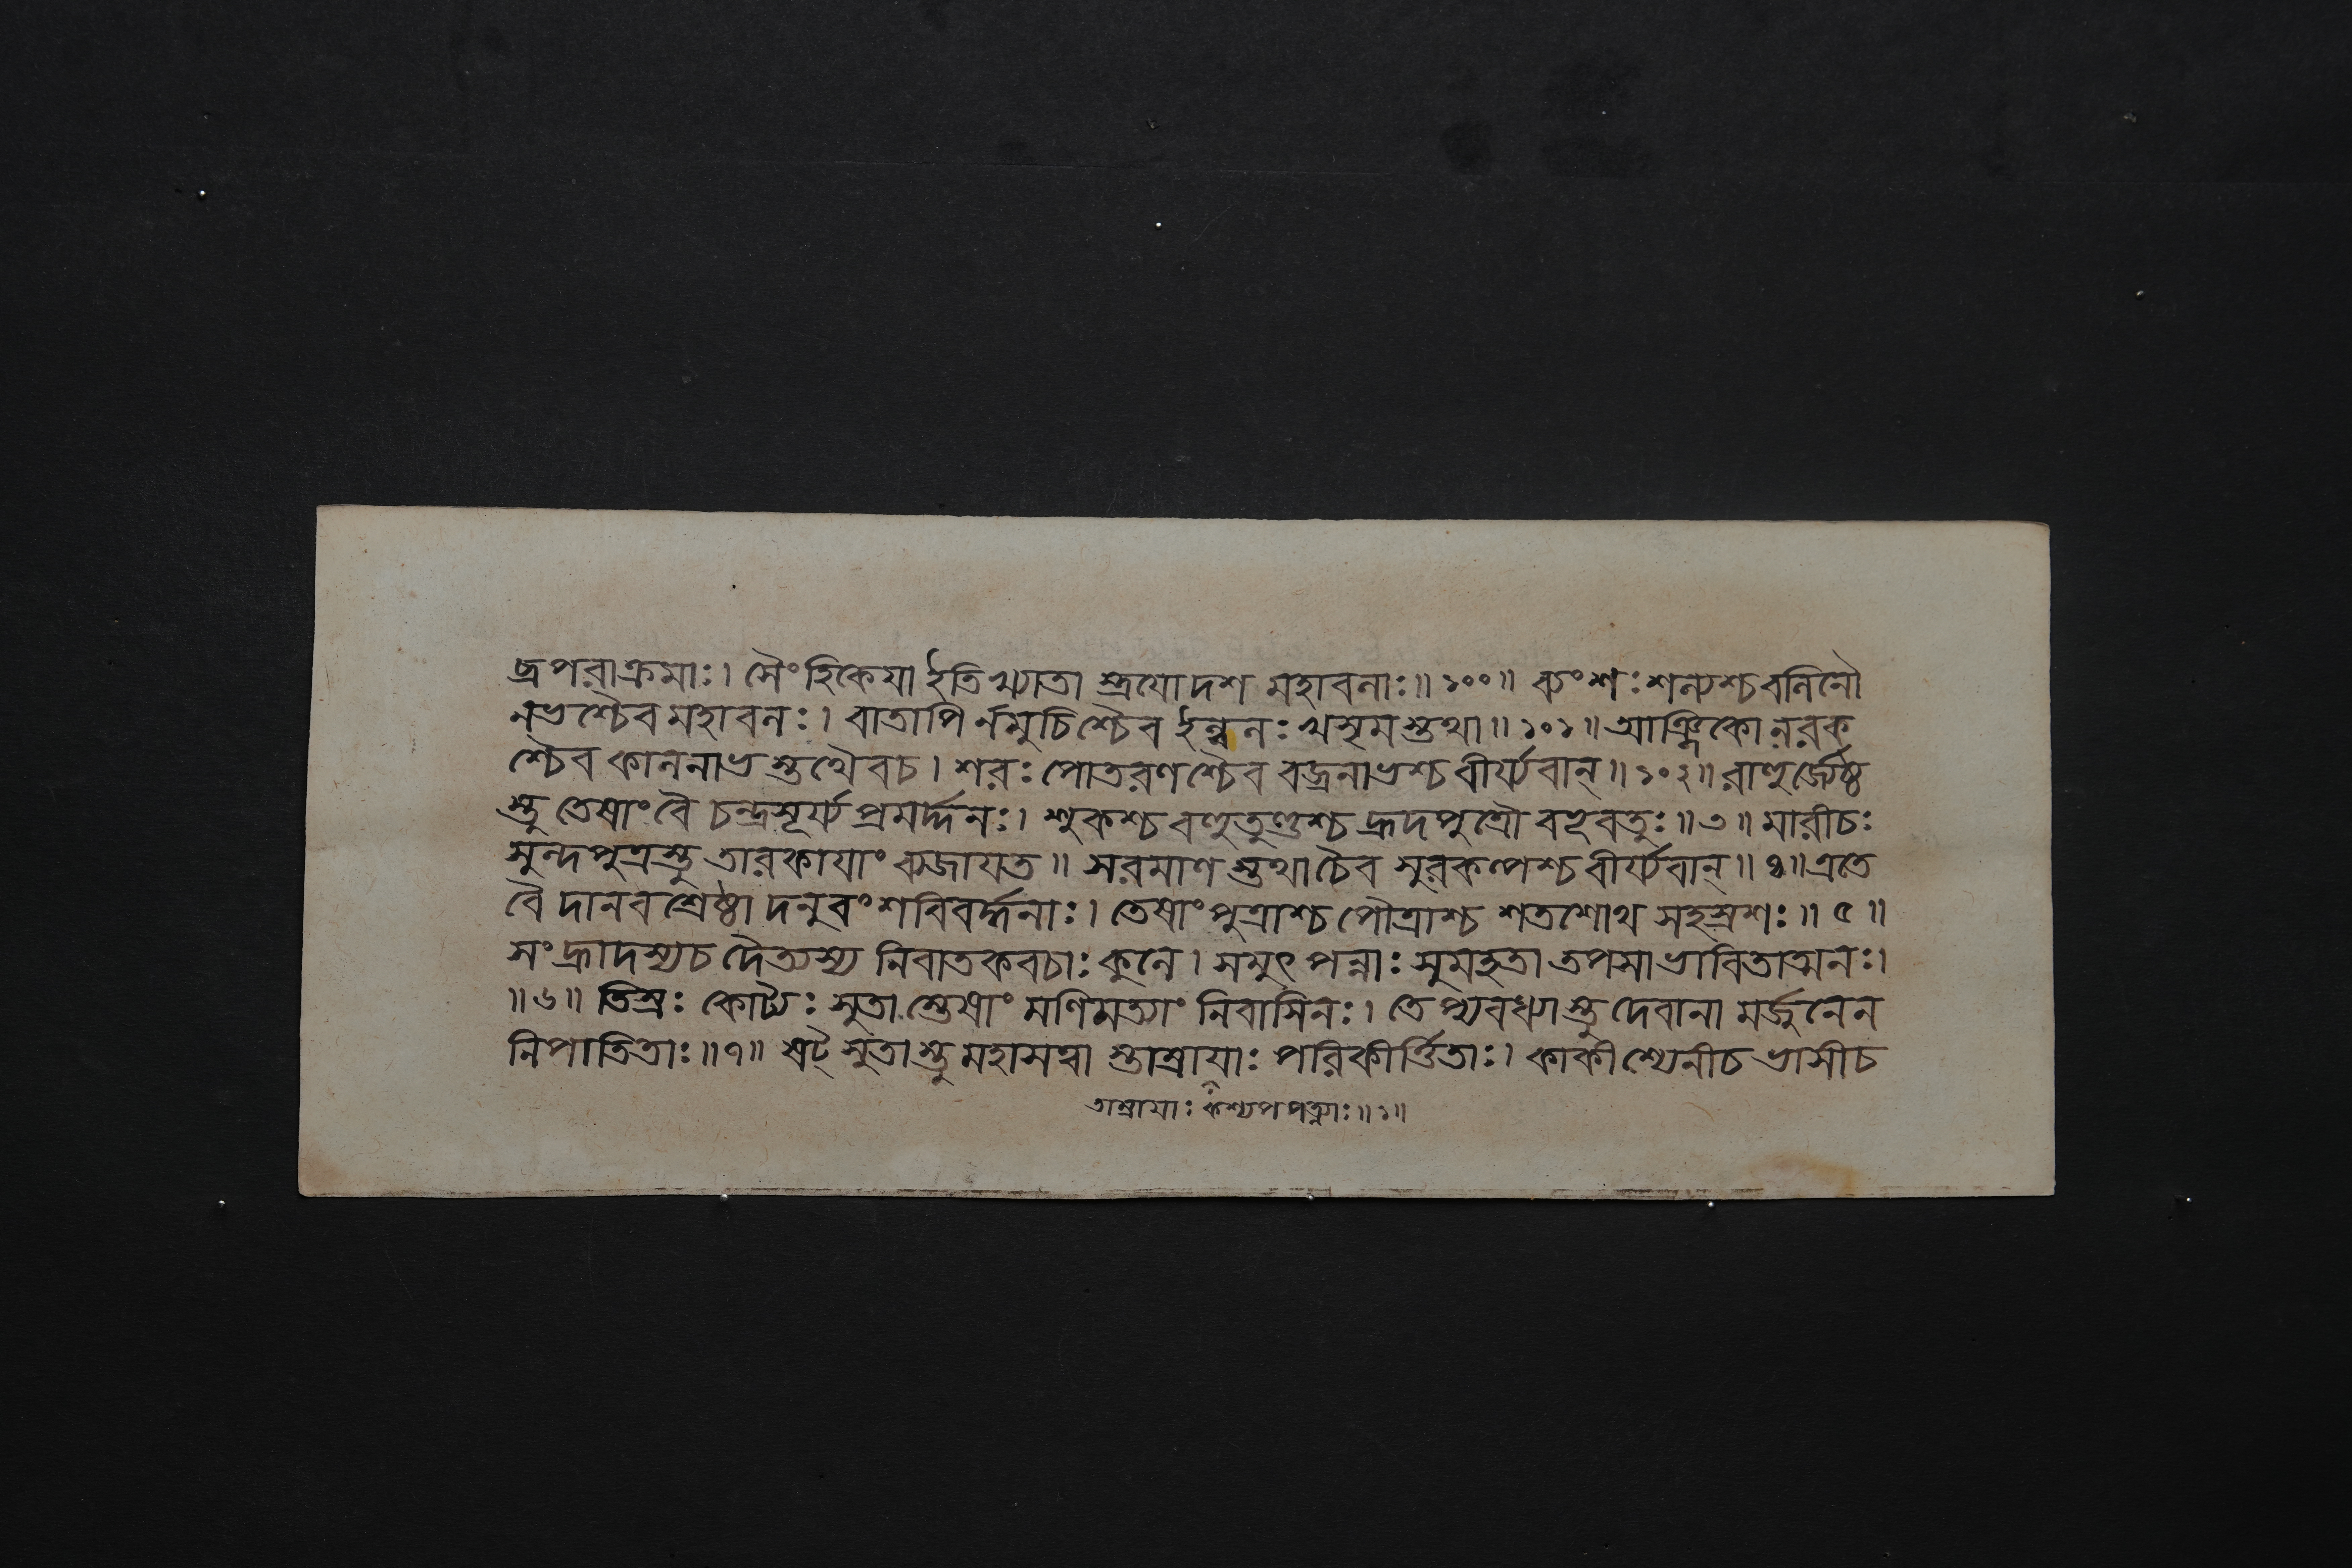 ভ্রপরাক্রমাঃ। সৈংহিকেযা ইতি খ্যাতা স্ত্রযোদশ মহাবলাঃ॥১০০॥ ব্যংশঃ শল্যশ্চ বলিনৌ
নভশ্চৈব মহাবলঃ। বাতাপি র্নমুচিশ্চৈব ইল্বলঃ খসৃমস্তথা॥১০১॥ আঞ্জিকো নরক
শ্চৈব কালনাভ স্তথৈবচ। শরঃ পোতরণশ্চৈব বজ্রনাভশ্চ বীর্য্যবান্॥১০২॥ রাহুর্জ্যেষ্ঠ
স্তু তেষাং বৈ চন্দ্রসূর্য্যপ্রমর্দ্দনঃ। শুকশ্চ বহুতুণ্ডশ্চ হ্রদপুত্রৌ বহূবতুঃ॥৩॥ মারীচঃ
সুন্দপুত্রস্তু তারকাযাং ব্যজাযত॥ সরমাণ স্তথা চৈব সুরকল্পশ্চ বীর্য্যবান্॥৪॥ এতে
বৈ দানবশ্রেষ্ঠা দনুবংশবিবর্দ্ধনাঃ। তেষাং পুত্রাশ্চ পৌত্রাশ্চ শতশোথ সহস্রশঃ॥৫॥
সংহ্রাদস্যচ দৈত্যস্য নিবাতকবচাঃ কুলে। সমুৎপন্নাঃ সুমহতা তপসা ভাবিতাত্মনঃ।
॥৬॥ তিস্রঃ কোট্যঃ সুতা স্তেষাং মণিমত্যাং নিবাসিনঃ। তেপ্যবধ্যাস্তু দেবানা মর্জুনেন
নিপাতিতাঃ॥৭॥ ষট্ সুতাস্তু মহাসত্বা স্তাম্রাযাঃ পরিকীর্ত্তিতাঃ। কাকী শ্যেনীচ ভাসীচ
তাম্রাযাঃ কশ্যপপত্ন্যাঃ॥১॥